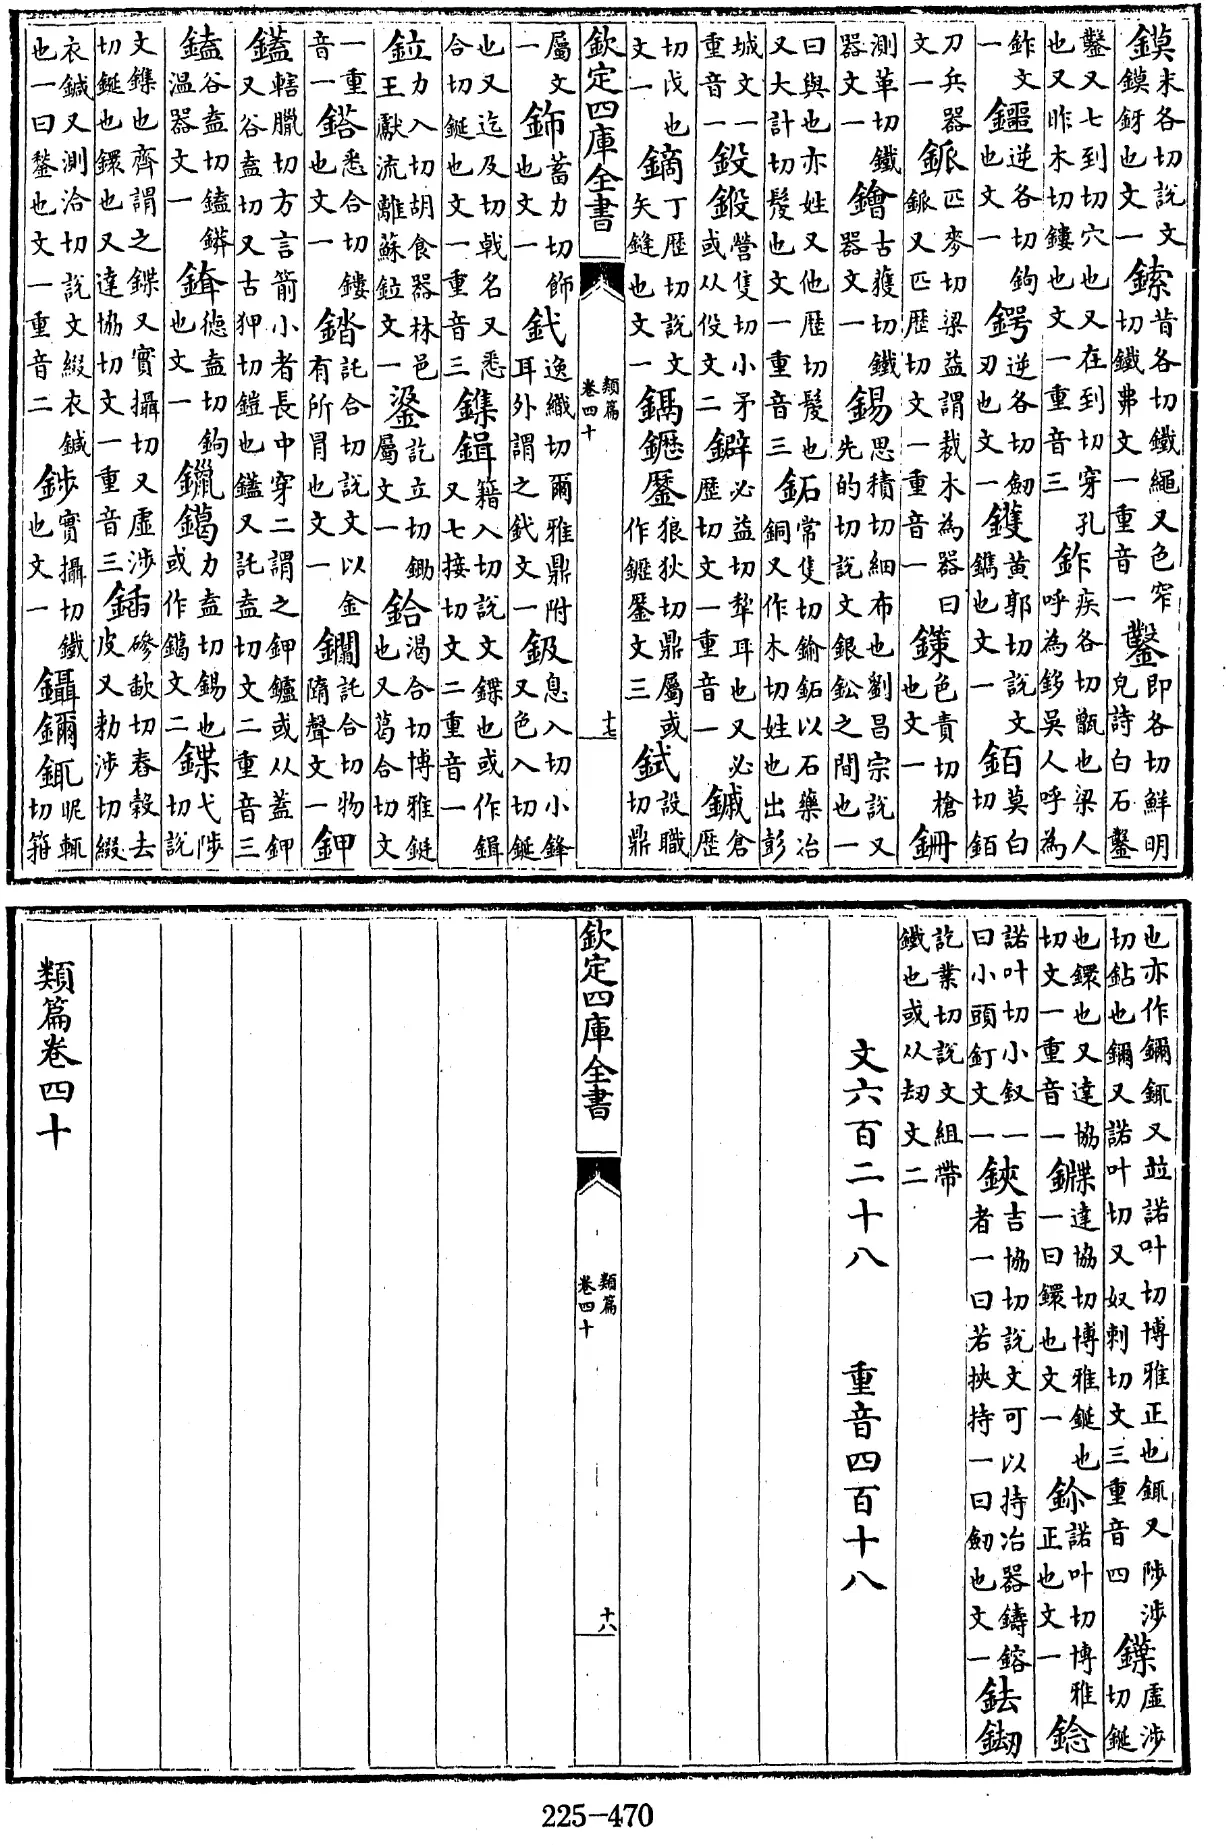 鏌末各切說文鏌釾也文一鎍昔各切鐵繩又色窄切鐵弗文一重音一鑿即各切鮮明皃詩白石鑿
鑿又七到切穴也又在到切穿孔也又昨木切鏤也文一重音三鈼疾各切甑也梁人呼為鉹吳人呼為
鈼文一逆各切鉤也文一鍔逆各切劒刃也文一鑊黃郭切說文鐫也文一銆莫白切銆
刀兵器文一匹麥切梁益謂裁木為器曰又匹歷切文一重音一色責切槍也文一
測革切鐵器文一古獲切鐵器文一錫思積切細布也劉昌宗說又先的切說文銀鈆之間也一
曰與也亦姓又他歷切髲也又大計切髲也文一重音三鉐常隻切鍮鉐以石藥冶銅又作木切姓也出彭
城文一重音一鈠營隻切小矛或从役文二鐴必益切犂耳也又必歷切文一重音一鏚倉歷
切戉也文一鏑丁歷切說文矢鏠也文一鎘狼狄切鼎屬或作文三鉽設職切鼎
欽定四庫全書
類篇卷四十
十七
屬文一鉓蓄力切飾也文一釴逸織切爾雅鼎附耳外謂之釴文一鈒息入切小鋒又色入切鋋
也又迄及切戟名又悉合切鋋也文一重音三鏶鍓籍入切說文鍱也或作鍓又七接切文二重音一
鉝力入切胡食器林邑王獻流離蘇鉝文一訖立切鋤屬文一鉿渴合切博雅鋌也又葛合切文
一重音一鎝悉合切鏤也文一錔託合切說文以金有所冒也文一託合切物隋聲文一鉀
鑉又轄臘切方言箭小者長中穿二謂之鉀鑪或从蓋鉀又谷盍切又古狎切鎧也又託盍切文二重音三
鎑谷盍切鎑鏻溫器文一德盍切鉤也文一鑞力盍切錫也或作文二鍱弋涉切說
文鏶也齊謂之鍱又實攝切又虛涉切鋋也鐶也又達協切文一重音三鍤磣歃切舂穀去皮又勑涉切綴
衣鍼又測洽切說文綴衣鍼也一曰鍫也文一重音二實攝切鐵也文一鑷鑈銸昵輒切箝
也亦作鑈銸又竝諾叶切博雅正也銸又陟涉切鉆也鑈又諾叶切又奴刺切文三重音四鏶虛涉切鋋
也鐶也又達協切文一重音一達協切博雅鋋也一曰鐶也文一諾叶切博雅正也文一錜
諾叶切小釵一曰小頭釘文一鋏吉協切說文可以持冶器鑄鎔者一曰若挾持一曰劒也文一鉣
訖業切說文組帶鐵也或从刧文二
文六百二十八　重音四百十八
欽定四庫全書
類篇卷四十
十八
類篇卷四十
225-470